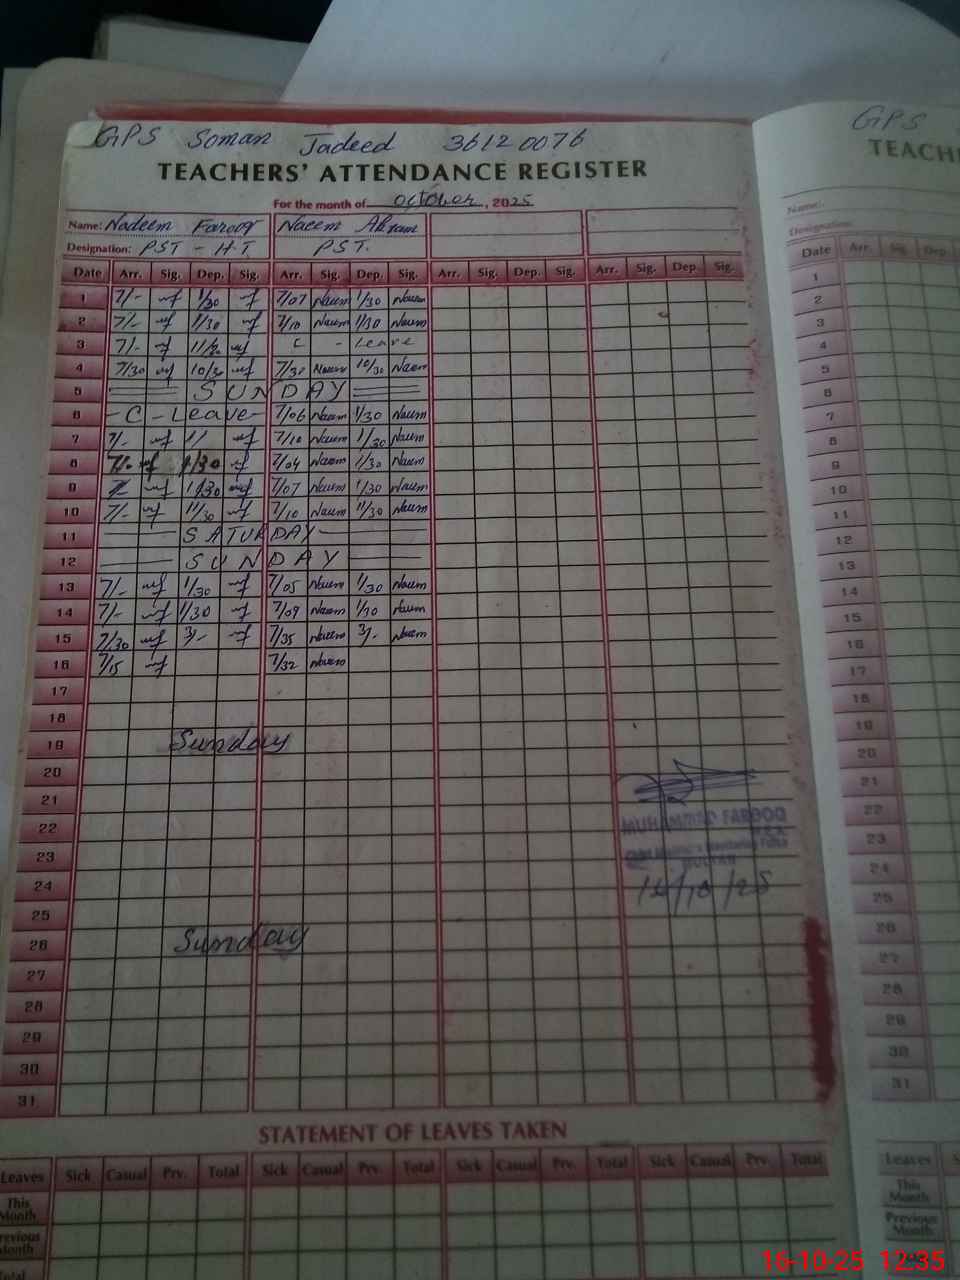 GPS Soman Jadeed 36120076
GPS
TEACHERS' ATTENDANCE REGISTER
For the month of october, 2025
Name: Nadeem Farooq Naeem Akram
Designation: PST - H.T PST.
Date Arr. Sig. Dep. Sig. Arr. Sig. Dep. Sig. Arr. Sig. Dep. Sig. Arr. Sig. Dep. Sig.
1 7/- 1/30 7/07 Naeem 1/30 Naeem
2 7/- 1/30 7/10 Naeem 1/30 Naeem
3 7/- C - Leave
4 7/30 10/30 7/30 Naeem 10/30 Naeem
5 SUNDAY
6 - C - Leave - 7/06 Naeem 1/30 Naeem
7 7/- 7/10 Naeem 1/30 Naeem
8 7/- 1/30 7/04 Naeem 1/30 Naeem
9 7/07 Naeem 1/30 Naeem
10 7/- 11/30 7/10 Naeem 11/30 Naeem
11 SATURDAY
12 SUNDAY
13 7/- 1/30 7/05 Naeem 1/30 Naeem
14 7/- 1/30 7/09 Naeem 1/30 Naeem
15 7/30 3/- 7/35 Naeem 3/- Naeem
16 7/15 7/32 Naeem
17
18
19 Sunday
20
21
22 MUHAMMAD FAROOQ
23
MULTAN
24
25
26 Sunday
27
28
29
30
31
STATEMENT OF LEAVES TAKEN
Leaves Sick Casual Prv. Total Sick Casual Prv. Total Sick Casual Prv. Total Sick Casual Prv. Total
This Month
Previous Month
Total
Name:
Date Arr. Sig. Dep
1
2
3
4
5
6
7
8
9
10
11
12
13
14
15
16
17
18
19
20
21
22
23
24
25
26
27
28
29
30
31
Leaves
This Month
Previous Month
16-10-25 12:35